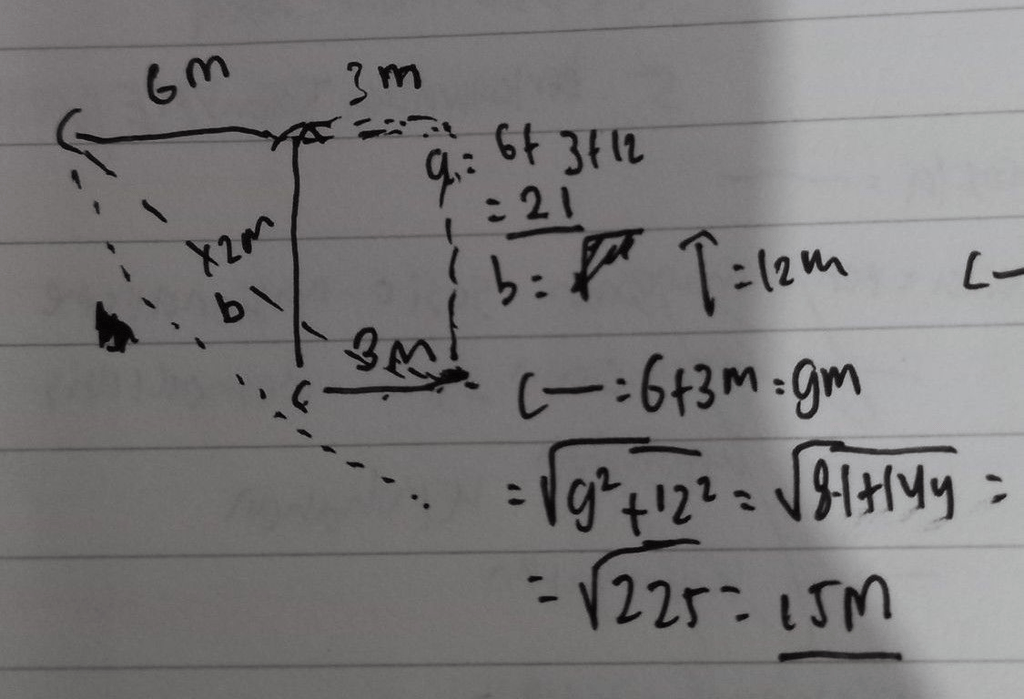 6m 3m
a = 6+ 3+12
= 21
12m
b = ↑ = 12m
b
3m
= 6+3m = 9m
= √9² + 12² = √81+144 =
= √225 = 15m